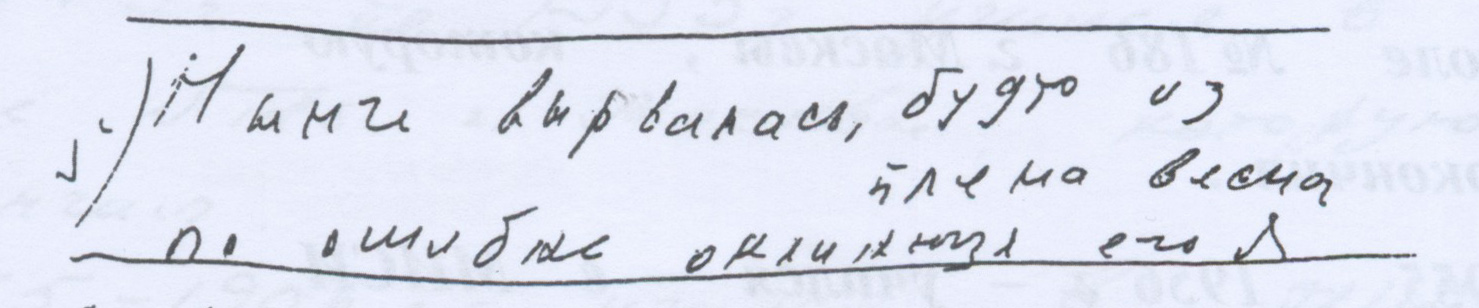 Нынче вырвалась, будто из
плена весна
по ошибке окликнул его я